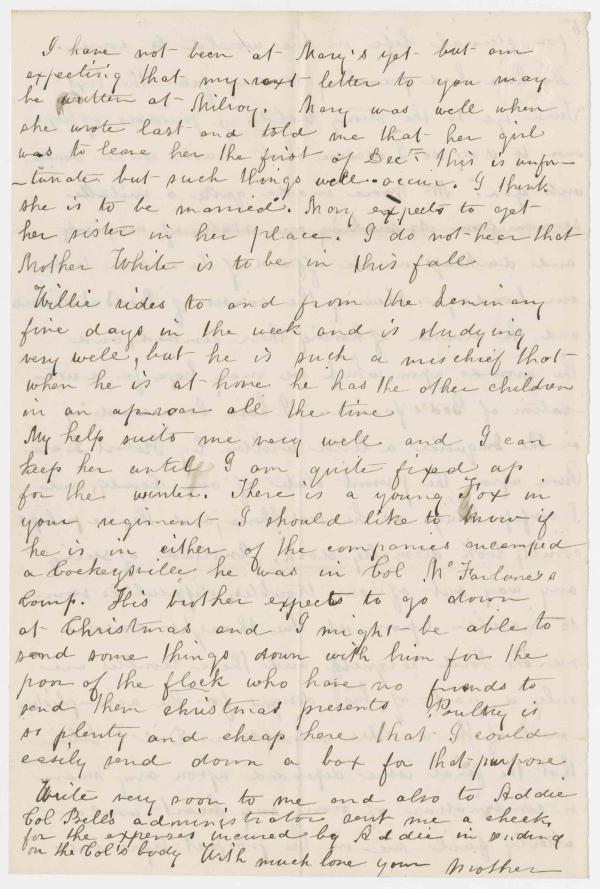 I have not been at Mary's yet but am
expecting that my next letter to you may
be written at Milroy. Mary was well when
she wrote last and told me that her girl
was to leave her the first of Decr. This is unfor-
-tunate but such things will occur. I think
she is to be married. Mary expects to get
her sister in her place. I do not hear that
Mother White is to be in this fall
Willie rides to and from the Seminary
five days in the week and is studying
very well, but he is such a mischief that
when he is at home he has the other children
in an uproar all the time
My help suits me very well and I can
keep her until I am quite fixed up
for the winter. There is a young Fox in
your regiment I should like to know if
he is in either of the companies encamped
a Cockeysville he was in Col McFarlane's
Comp. His brother expects to go down
at Christmas and I might be able to
send some things down with him for the
poor of the flock who have no friends to
send them christmas presents Poultry is
so plenty and cheap here that I could
easily send down a box for that purpose
Write very soon to me and also to Addie
Col Bell's administrator sent me a check
for the expenses incured by Addie in sending
on the Col's body With much love your Mother